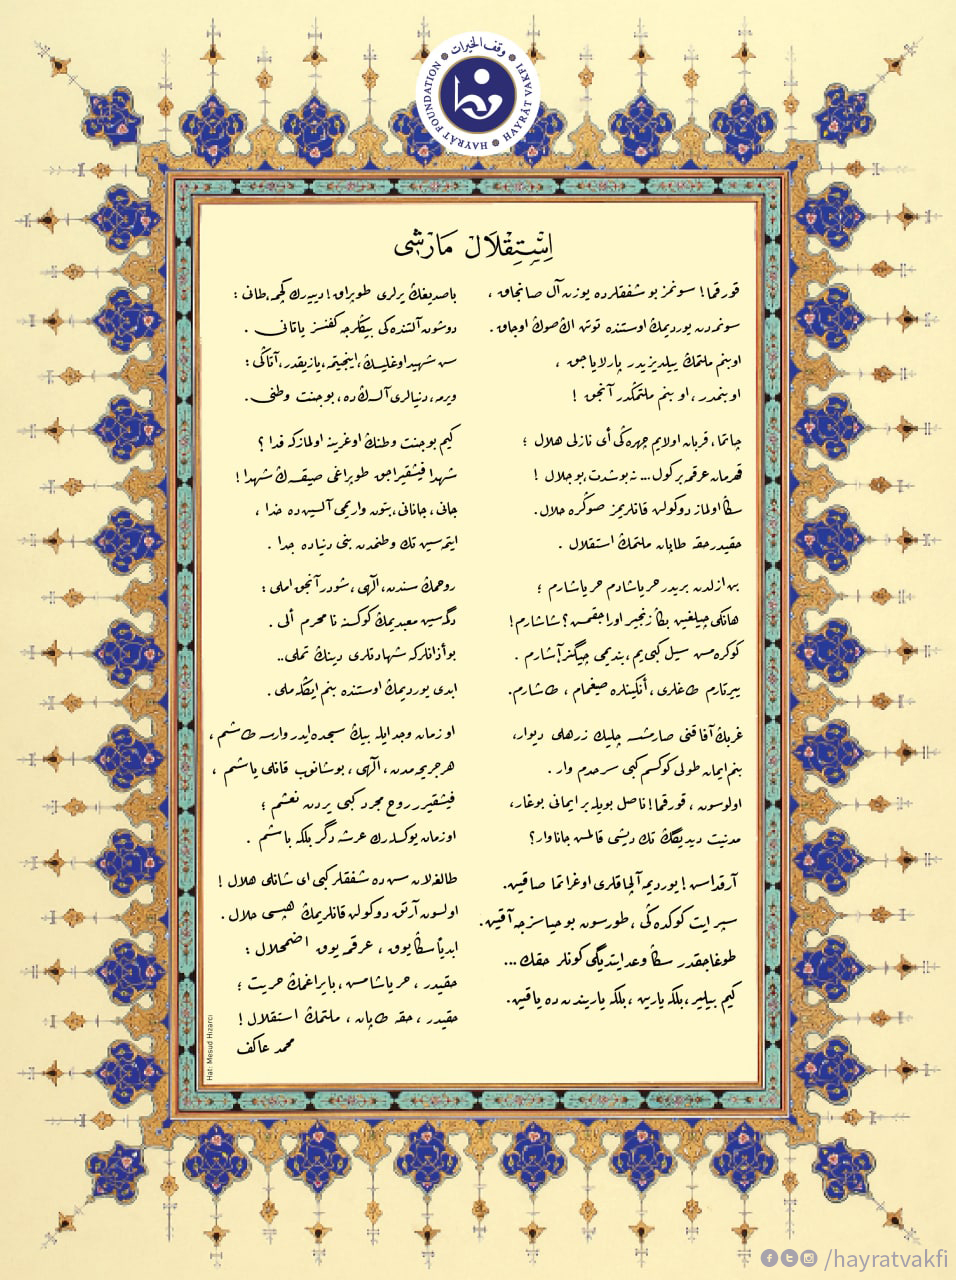 وقف الخيرات
HAYRÂT FOUNDATION • HAYRÂT VAKFI
إستقلال مارشى
قورقما! سونمز بو شفقلرده یوزن آل صانجاق ،
سونمه‌دن یوردیمڭ اوستنده توتن اڭ صوڭ اوجاق .
او بنم ملتمڭ ییلدیزیدر پارلایاجق ،
او بنمدر ، او بنم ملتمڭدر آنجق !
چاتما ، قربان اولایم چهره‌ڭی أی نازلی هلال ؛
قهرمان عرقمه بر كول ... نه بو شدت ، بو جلال !
سڭا اولماز دوكولن قانلریمز صوڭره حلال .
حقیدر حقه طاپان ملتمڭ استقلال .
بن ازلدن بریدر حر یاشادم حر یاشارم ؛
هانكی چیلغین بڭا زنجیر اوراجقمش ؟ شاشارم !
كوكره‌مش سیل كبی‌یم ، بندیمی چیگنر آشارم .
ییرتارم طاغلری ، أنگینلره صیغمام ، طاشارم .
غربڭ آفاقنی صارمشسه چلیك زرهلی دیوار ،
بنم ایمان طولی كوكسم كبی سرحدم وار .
اولوسون ، قورقما! ناصل بویله بر ایمانی بوغار ،
مدنیت دیدیگڭ تك دیشی قالمش جاناوار؟
آرقداش ! یوردیمه آلچاقلری اوغراتما صاقین .
سپر ایت كوكده‌ڭی ، طورسون بو حیاسزجه آقین .
طوغاجقدر سڭا وعد ایتدیگی كونلر حقڭ ...
كیم بیلیر ، بلكه یارین ، بلكه یاریندن ده یاقین .
باصدیغڭ یرلری طوپراق ! دییه‌رك كچمه ، طانی :
دوشون آلتنده‌كی بیڭلرجه كفنسز یاتانی .
سن شهید اوغلیسڭ ، اینجیتمه ، یازیقدر ، آتاڭی :
ویرمه ، دنیالری آلسه‌ڭ ده ، بو جنت وطنی .
كیم بو جنت وطنڭ اوغرینه اولمازكه فدا ؟
شهدا فیشقیراجق طوپراغی صیقسه‌ڭ شهدا !
جانی ، جانانی ، بتون واریمی آلسین ده خدا ،
ایتمه‌سین تك وطنمدن بنی دنیاده جدا .
روحمڭ سندن ، الٰهی ، شودر آنجق املی :
دگمه‌سین معبدیمڭ كوكسنه نامحرم ألی .
بو أذانلركه شهادتلری دینڭ تملی..
ابدی یوردیمڭ اوستنده بنم ایڭله‌ملی .
او زمان وجد ایله بیڭ سجده ایدر وارسه طاشم ،
هر جریحه‌مدن ، الٰهی ، بوشانوب قانلی یاشم ،
فیشقیرر روح مجرد كبی یردن نعشم ؛
او زمان یوكسله‌رك عرشه دگر بلكه باشم .
طالغالان سن ده شفقلر كبی ای شانلی هلال !
اولسون آرتق دوكولن قانلریمڭ هپسی حلال .
ابدیاً سڭا یوق ، عرقمه یوق اضمحلال :
حقیدر ، حر یاشامش ، بایراغمڭ حریت ؛
حقیدر ، حقه طاپان ، ملتمڭ استقلال !
محمد عاكف
Hat: Mesud Hızarcı
/hayratvakfi